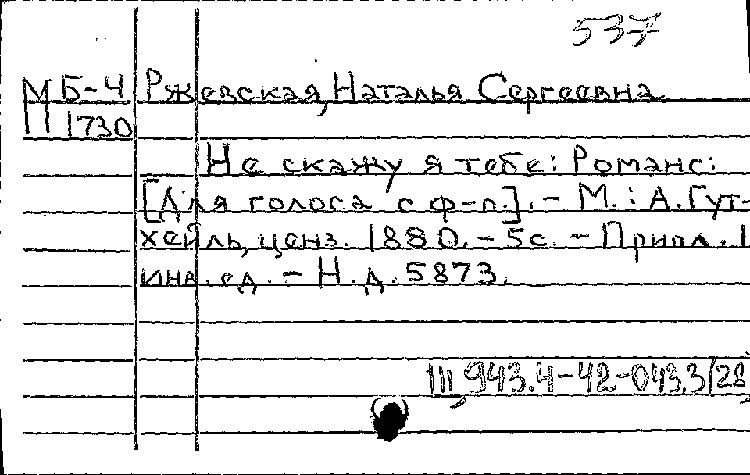 537
М Б-4 Ржевская, Наталья Сергеевна
П 1730
Не скажу я тебе: Романс:
[Для голоса с ф-п.]. - М.: А.Гут-
хейль, ценз. 1880. - 5с. - Прил. 1
инв. ед. - Н.д. 5873.
943.4-42-043.3/28